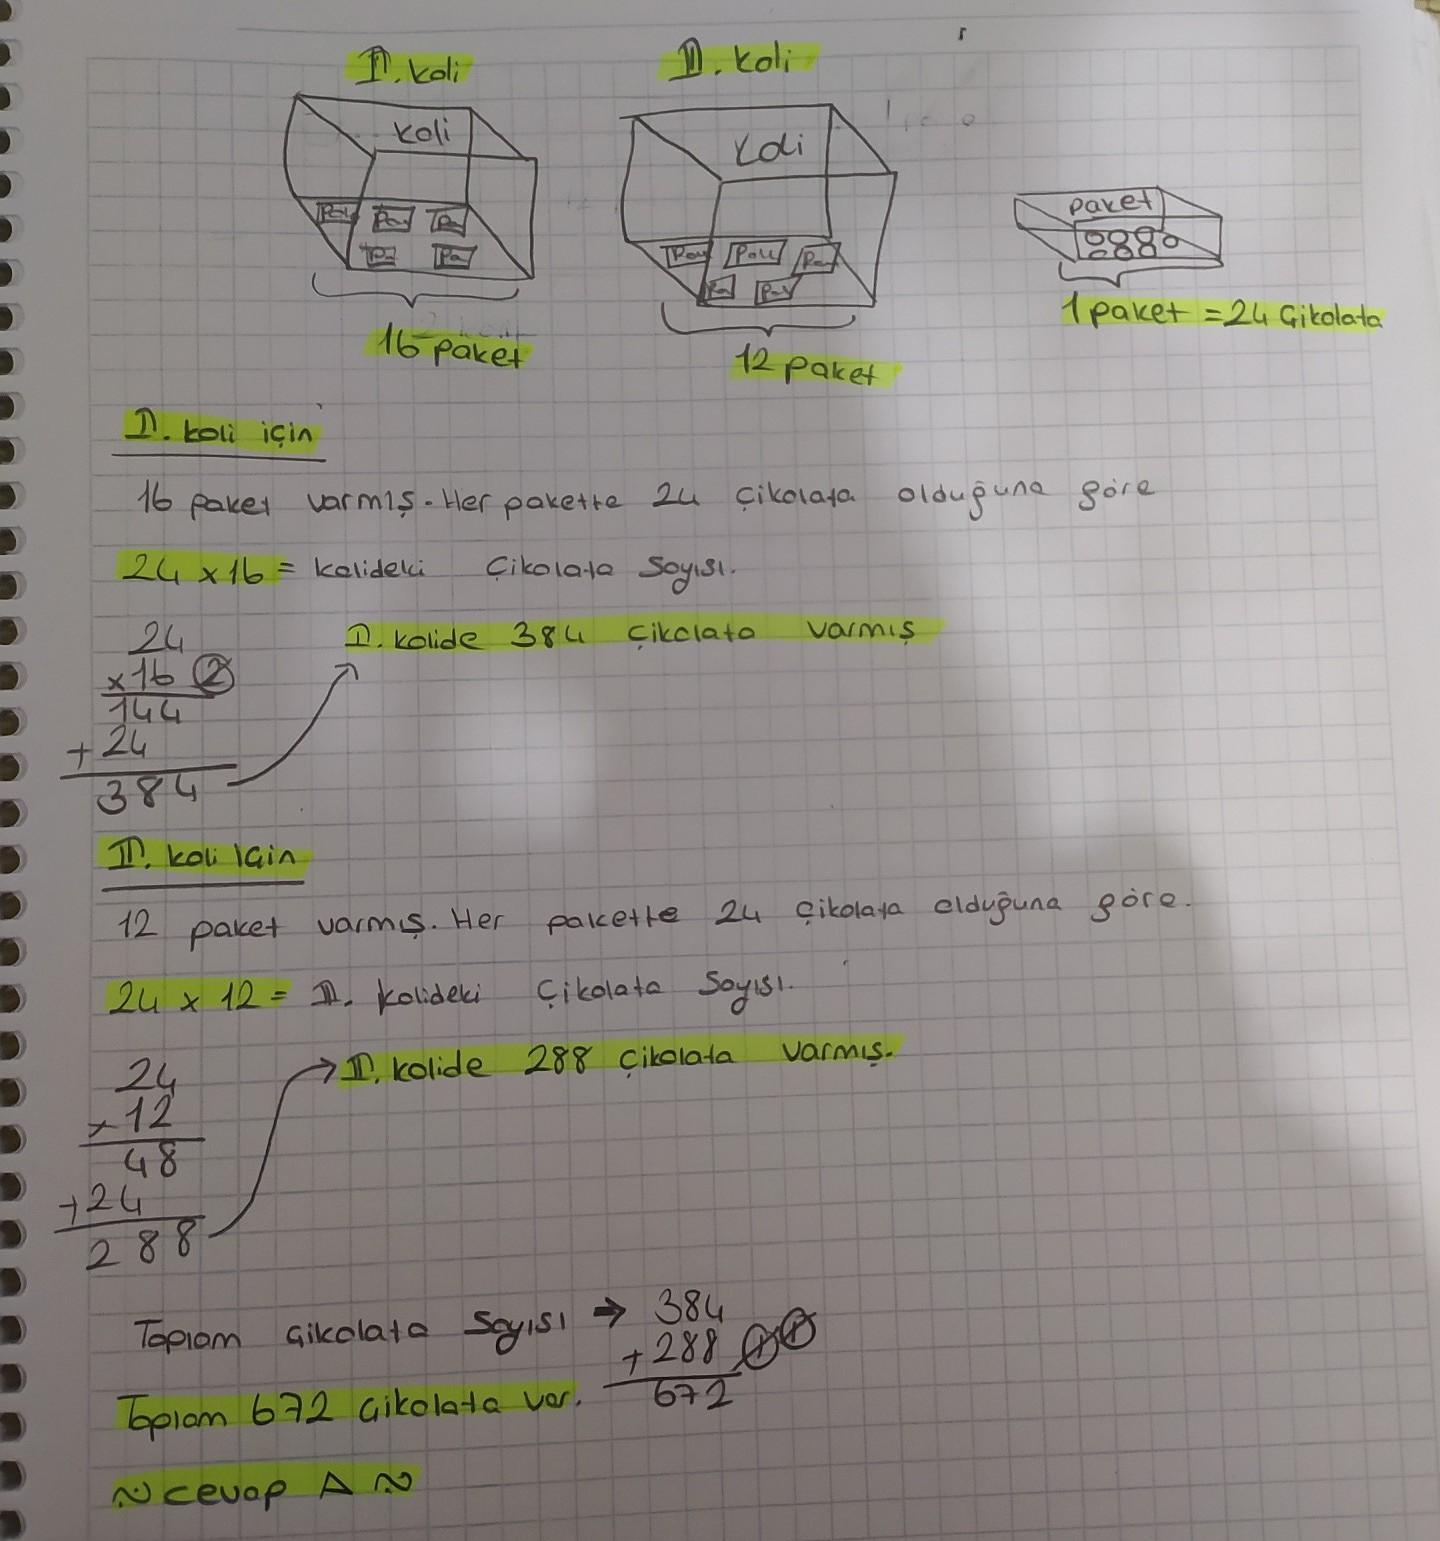 I. koli
II. koli
koli
koli
paket
Pa Pa
1 paket = 24 Çikolata
16 paket
12 paket
I. koli için
16 paket varmış. Her pakette 24 Çikolata olduğuna göre
24 x 16 = kolideki Çikolata Sayısı.
24
x16 2
144
+ 24
384
I. kolide 384 Çikolata varmış
II. koli İçin
12 paket varmış. Her pakette 24 Çikolata olduğuna göre.
24 x 12 = II. kolideki Çikolata Sayısı.
24
x 12
48
+24
288
II. kolide 288 Çikolata varmış.
Toplam Çikolata Sayısı → 384
+ 288
672
Toplam 672 Çikolata var.
~ Cevap A ~